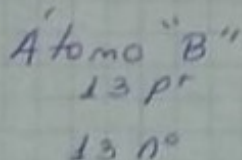 Átomo "B"
13 p⁺
13 n°